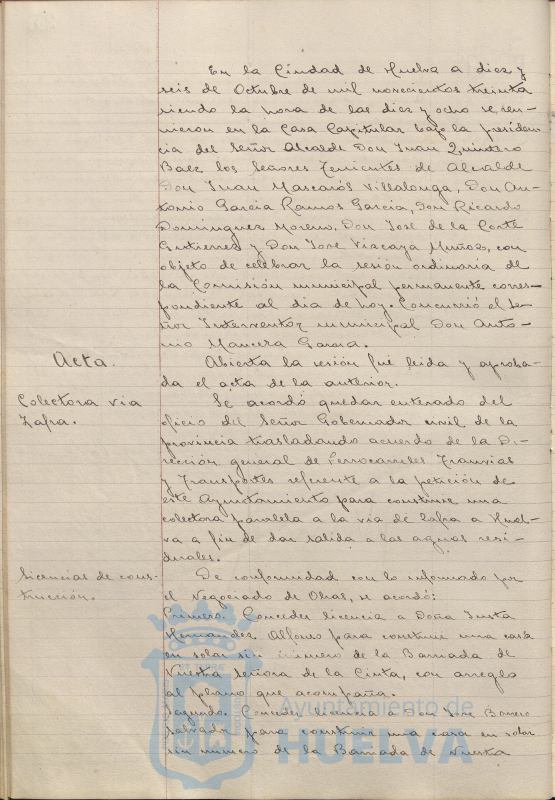 En la Ciudad de Huelva a diez y
seis de Octubre de mil novecientos treinta
siendo la hora de las diez y ocho se reu-
nieron en la Casa Capitular bajo la presiden-
cia del Señor Alcalde Don Juan Quintero
Baez los Señores Tenientes de Alcalde
Don Juan Mascarós Villalonga, Don An-
tonio Garcia Ramos Garcia, Don Ricardo
Dominguez Moreno, Don José de la Corte
Gutierrez y Don José Viscaya Muñoz, con
objeto de celebrar la sesión ordinaria de
la Comisión municipal permanente corres-
pondiente al dia de hoy. Concurrió el Se-
ñor Interventor municipal Don Anto-
nio Mancera Garcia.
Acta.
Abierta la sesión fué leida y aproba-
da el acta de la anterior.
Colectora via
Zafra.
Se acordó quedar enterado del
oficio del Señor Gobernador civil de la
provincia trasladando acuerdo de la Di-
rección general de Ferrocarriles Tranvias
y Transportes referente a la petición de
este Ayuntamiento para construir una
colectora paralela a la via de Zafra a Huel-
va a fin de dar salida a las aguas resi-
duales.
Licencias de cons-
trucción.
De conformidad con lo informado por
el Negociado de Obras, se acordó:
Primero. Conceder licencia a Doña Justa
Hernandez Alfonso para construir una casa
en solar sin número de la Barriada de
Nuestra Señora de la Cinta, con arreglo
al plano que acompaña.
Segundo. Conceder licencia a Don José Borrero
Salvador para construir una casa en solar
sin número de la Barriada de Nuestra
Ayuntamiento de
HUELVA